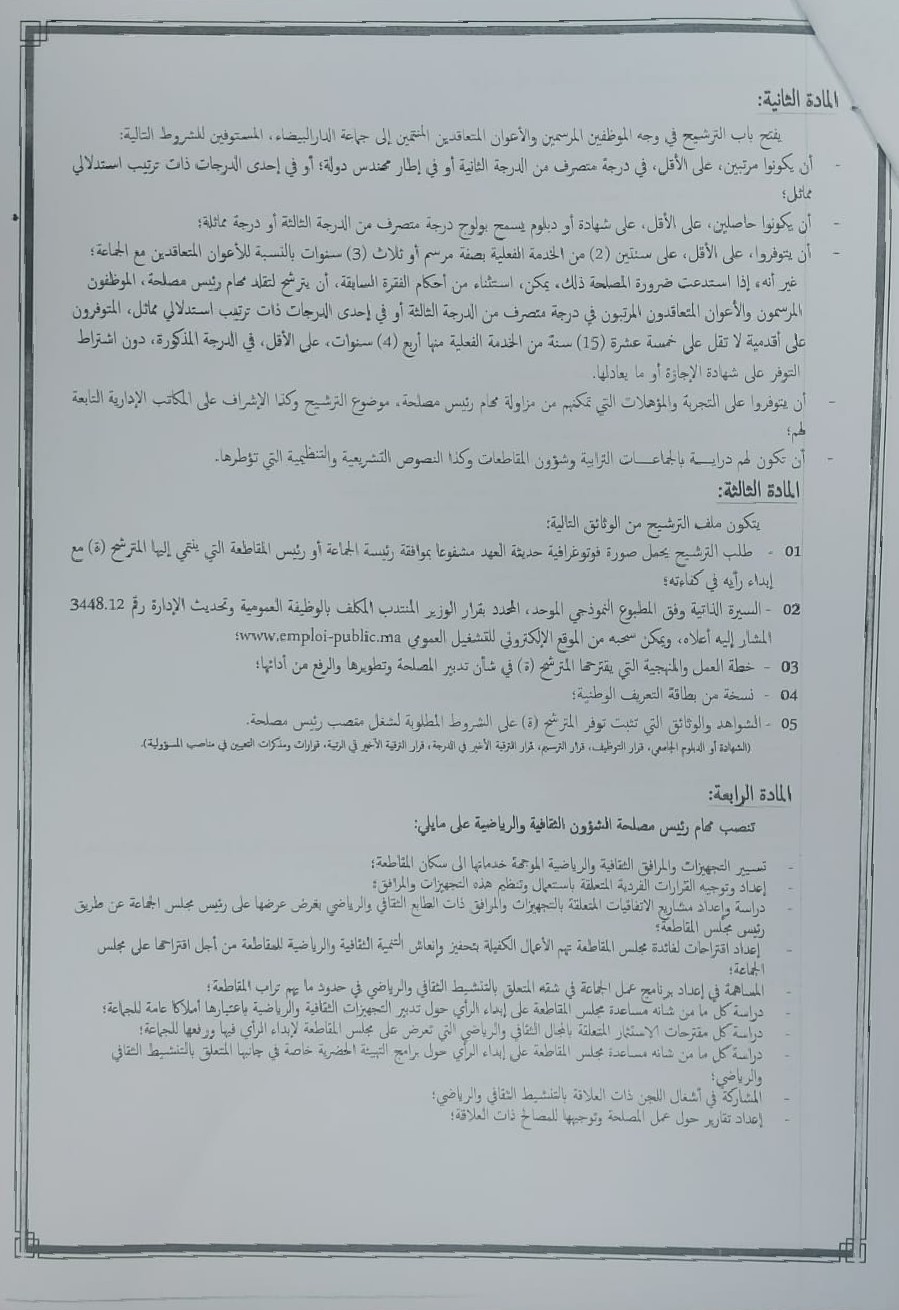 المادة الثانية:
يفتح باب الترشيح في وجه الموظفين المرسمين والأعوان المتعاقدين المنتمين إلى جماعة الدارالبيضاء، المستوفين للشروط التالية:
- أن يكونوا مرتبين، على الأقل، في درجة متصرف من الدرجة الثانية أو في إطار مهندس دولة؛ أو في إحدى الدرجات ذات ترتيب استدلالي
مماثل؛
- أن يكونوا حاصلين، على الأقل، على شهادة أو دبلوم يسمح بولوج درجة متصرف من الدرجة الثالثة أو درجة مماثلة؛
- أن يتوفروا، على الأقل، على سنتين (2) من الخدمة الفعلية بصفة مرسم أو ثلاث (3) سنوات بالنسبة للأعوان المتعاقدين مع الجماعة؛
غير أنه، إذا استدعت ضرورة المصلحة ذلك، يمكن، استثناء من أحكام الفقرة السابقة، أن يترشح لتقلد مهام رئيس مصلحة، الموظفون
المرسمون والأعوان المتعاقدون المرتبون في درجة متصرف من الدرجة الثالثة أو في إحدى الدرجات ذات ترتيب استدلالي مماثل، المتوفرون
على أقدمية لا تقل على خمسة عشرة (15) سنة من الخدمة الفعلية منها أربع (4) سنوات، على الأقل، في الدرجة المذكورة، دون اشتراط
التوفر على شهادة الإجازة أو ما يعادلها.
- أن يتوفروا على التجربة والمؤهلات التي تمكنهم من مزاولة مهام رئيس مصلحة، موضوع الترشيح وكذا الإشراف على المكاتب الإدارية التابعة
لهم؛
- أن تكون لهم درايـــة بالجماعـــات الترابية وشؤون المقاطعات وكذا النصوص التشريعية والتنظيمية التي تؤطرها.
المادة الثالثة:
يتكون ملف الترشيح من الوثائق التالية:
01 - طلب الترشيح يحمل صورة فوتوغرافية حديثة العهد مشفوعا بموافقة رئيسة الجماعة أو رئيس المقاطعة التي ينتمي إليها المترشح (ة) مع
إبداء رأيه في كفاءته؛
02 - السيرة الذاتية وفق المطبوع النموذجي الموحد، المحدد بقرار الوزير المنتدب المكلف بالوظيفة العمومية وتحديث الإدارة رقم 3448.12
المشار إليه أعلاه، ويمكن سحبه من الموقع الإلكتروني للتشغيل العمومي www.emploi-public.ma؛
03 - خطة العمل والمنهجية التي يقترحها المترشح (ة) في شأن تدبير المصلحة وتطويرها والرفع من أدائها؛
04 - نسخة من بطاقة التعريف الوطنية؛
05 - الشواهد والوثائق التي تثبت توفر المترشح (ة) على الشروط المطلوبة لشغل منصب رئيس مصلحة.
(الشهادة أو الدبلوم الجامعي، قرار التوظيف، قرار الترسيم، قرار الترقية الأخير في الدرجة، قرار الترقية الأخير في الرتبة، قرارات ومذكرات التعيين في مناصب المسؤولية).
المادة الرابعة:
تنصب مهام رئيس مصلحة الشؤون الثقافية والرياضية على مايلي:
- تسيير التجهيزات والمرافق الثقافية والرياضية الموجهة خدماتها الى سكان المقاطعة؛
- إعداد وتوجيه القرارات الفردية المتعلقة باستعمال وتنظيم هذه التجهيزات والمرافق؛
- دراسة وإعداد مشاريع الاتفاقيات المتعلقة بالتجهيزات والمرافق ذات الطابع الثقافي والرياضي بغرض عرضها على رئيس مجلس الجماعة عن طريق
رئيس مجلس المقاطعة؛
- إعداد اقتراحات لفائدة مجلس المقاطعة تهم الأعمال الكفيلة بتحفيز وإنعاش التنمية الثقافية والرياضية للمقاطعة من أجل اقتراحها على مجلس
الجماعة؛
- المساهمة في إعداد برنامج عمل الجماعة في شقه المتعلق بالتنشيط الثقافي والرياضي في حدود ما يهم تراب المقاطعة؛
- دراسة كل ما من شانه مساعدة مجلس المقاطعة على إبداء الرأي حول تدبير التجهيزات الثقافية والرياضية باعتبارها أملاكا عامة للجماعة؛
- دراسة كل مقترحات الاستثمار المتعلقة بالمجال الثقافي والرياضي التي تعرض على مجلس المقاطعة لإبداء الرأي فيها ورفعها للجماعة؛
- دراسة كل ما من شانه مساعدة مجلس المقاطعة على إبداء الرأي حول برامج التهيئة الحضرية خاصة في جانبها المتعلق بالتنشيط الثقافي
والرياضي؛
- المشاركة في أشغال اللجن ذات العلاقة بالتنشيط الثقافي والرياضي؛
- إعداد تقارير حول عمل المصلحة وتوجيهها للمصالح ذات العلاقة؛